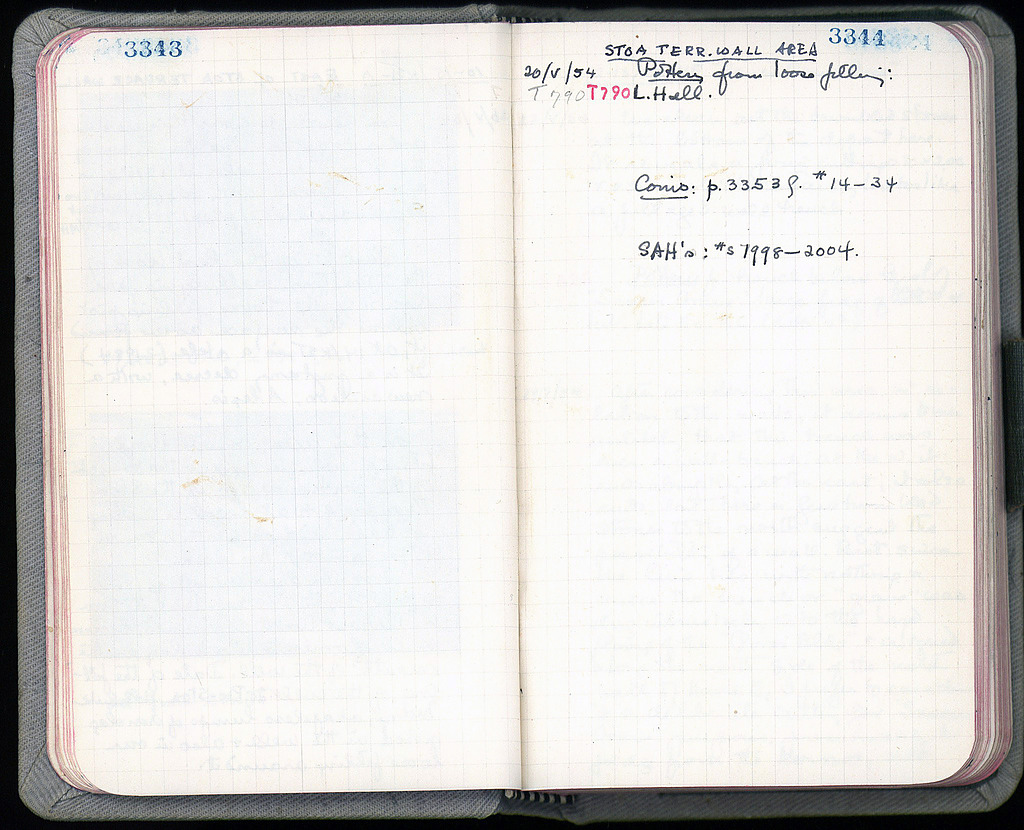 3343
3344
STOA TERR. WALL AREA
20/V/54 Pottery from loose filling:
T790 T790 L. Hell.
Coins: p. 3353 f. #14–34
SAH's: #s 1998–2004.